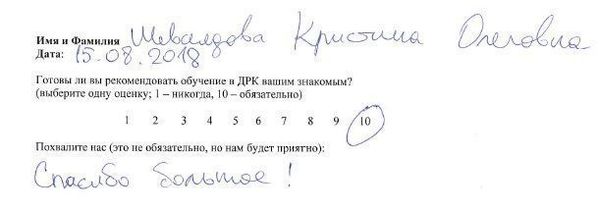 Имя и Фамилия Шевалдова Кристина Олеговна
Дата: 15.08.2018
Готовы ли вы рекомендовать обучение в ДРК вашим знакомым?
(выберите одну оценку; 1 – никогда, 10 – обязательно)
1 2 3 4 5 6 7 8 9 10
Похвалите нас (это не обязательно, но нам будет приятно):
Спасибо большое!